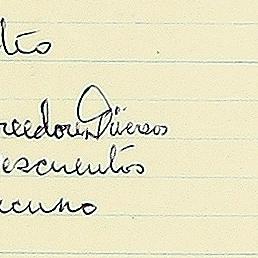 dito
reedores Diversos
escuentos
acuno